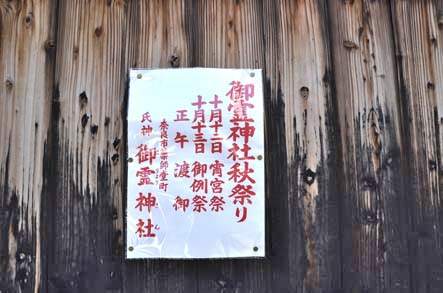 御霊神社秋祭り
十月十二日 宵宮祭
十月十三日 御例祭
正午 渡御
奈良市薬師堂町
氏神 御霊神社